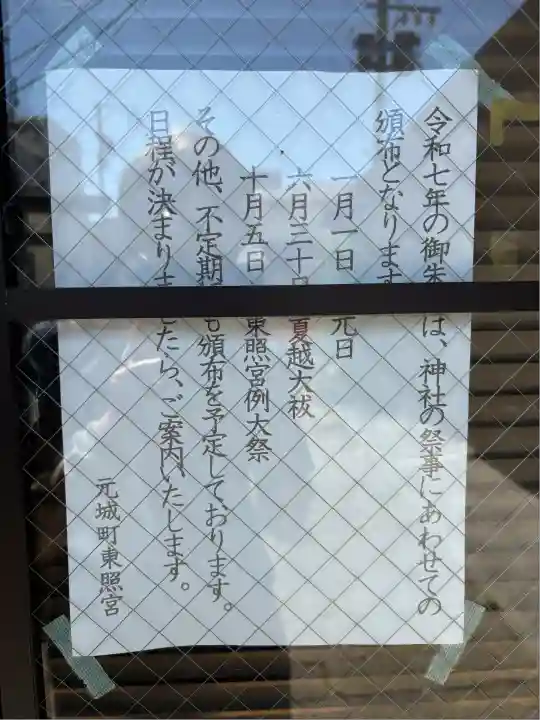 令和七年の御朱は、神社の祭事にあわせての
頒布となります
一月一日 元日
六月三十日 夏越大祓
十月五日 東照宮例大祭
その他、不定期も頒布を予定しております。
日程が決まりましたら、ご案内いたします。
元城町東照宮